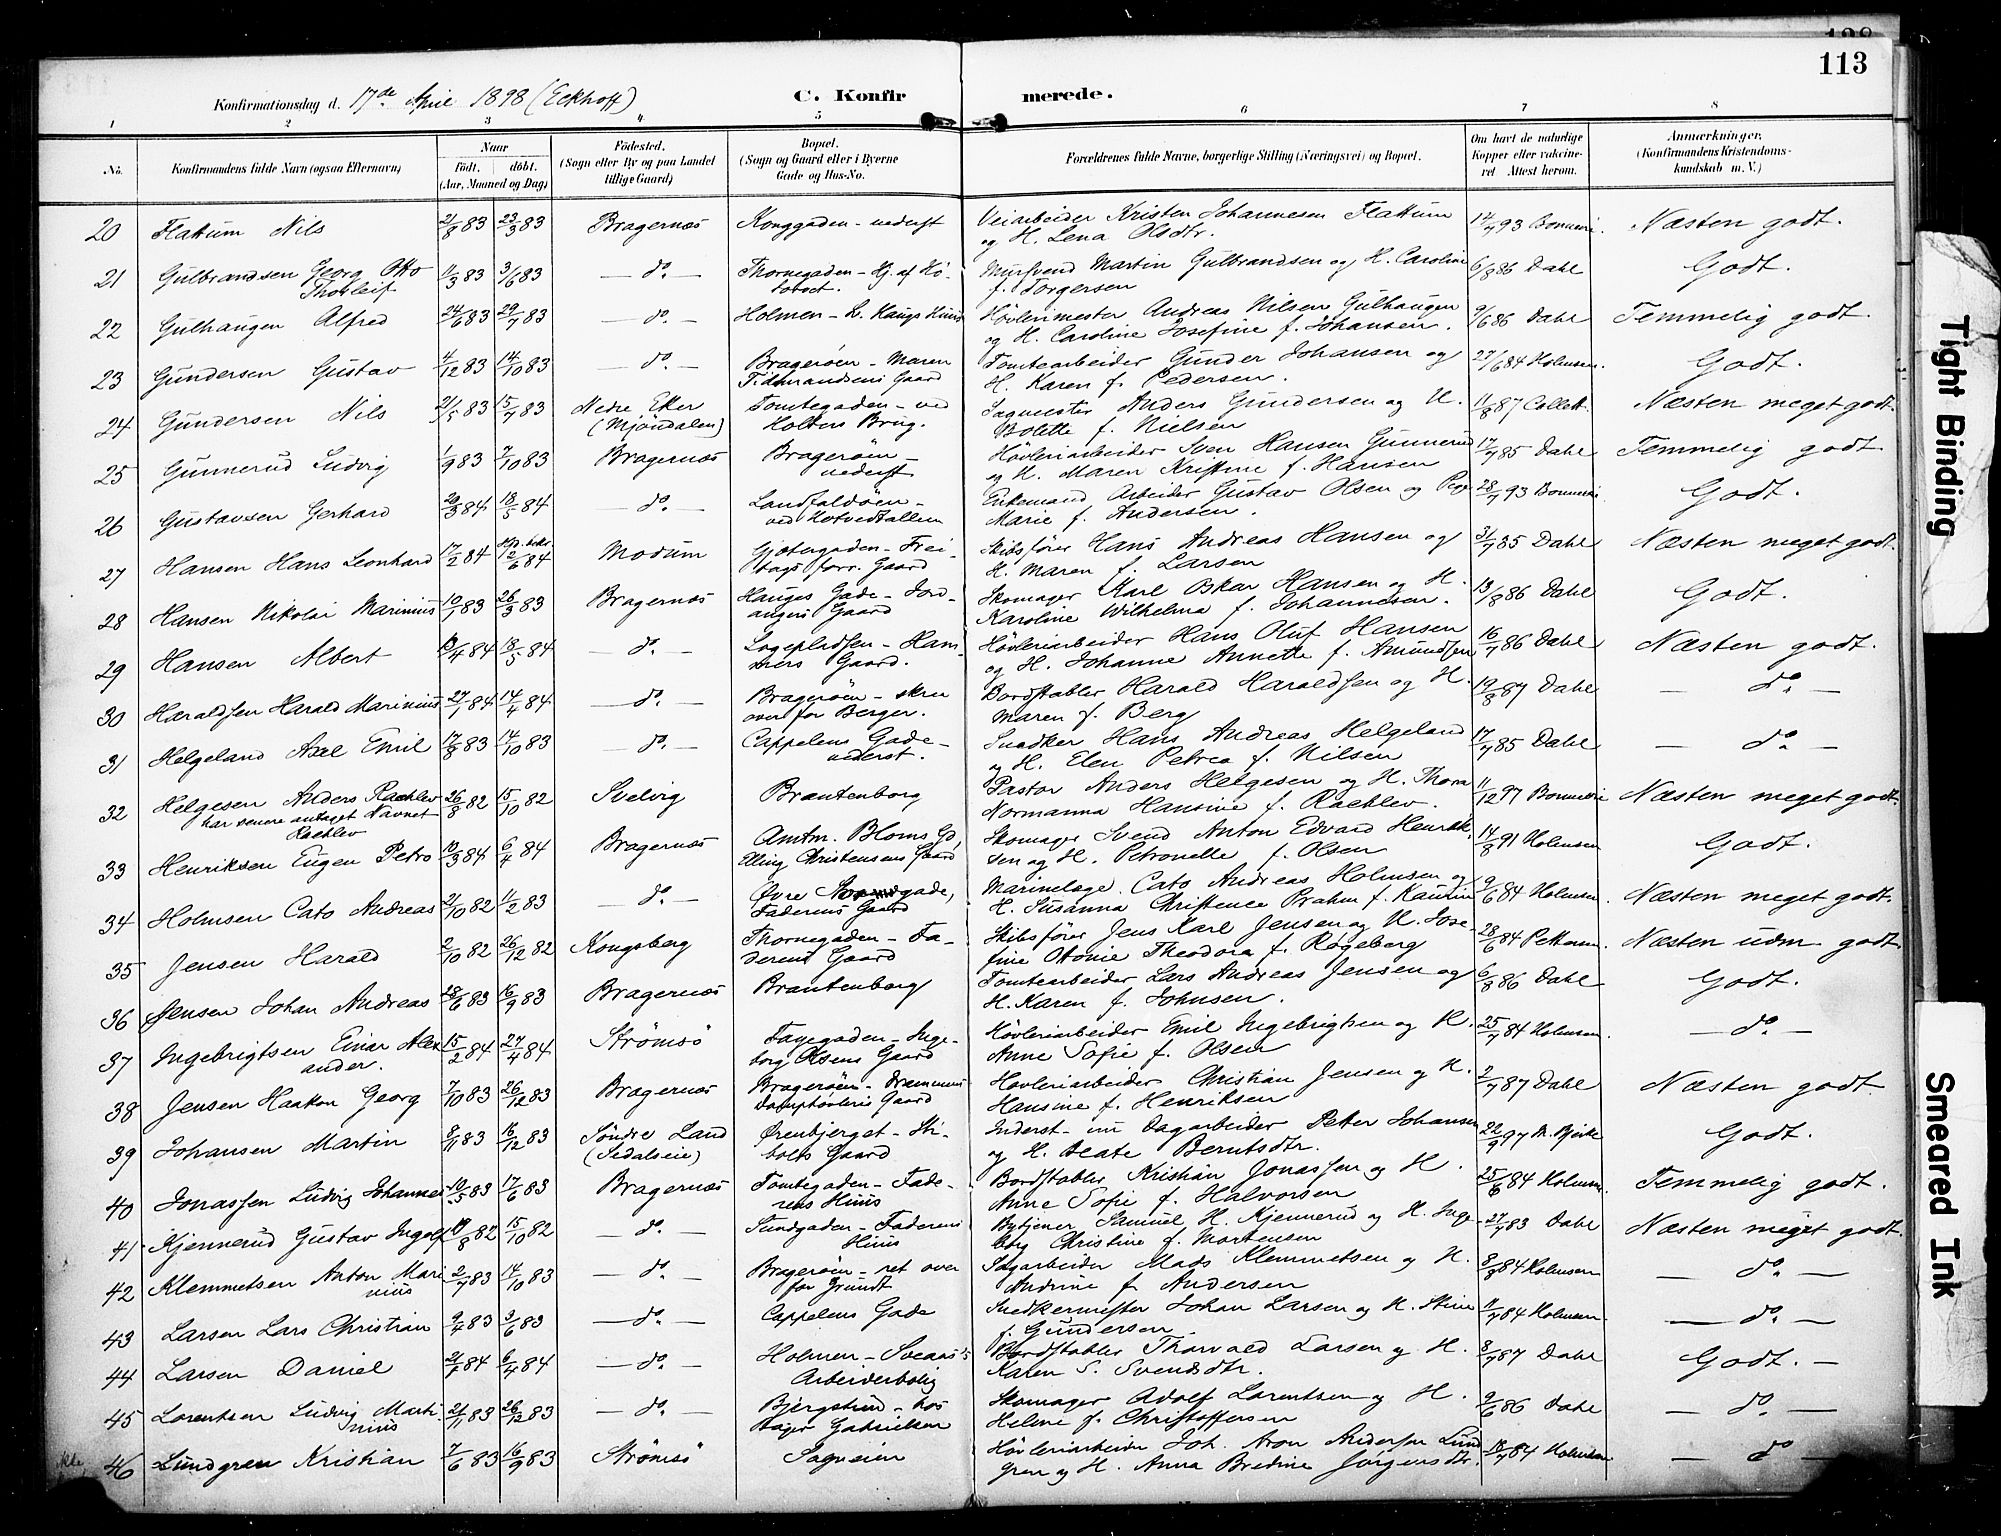 128
113
Konfirmationsdag d. 17de April 1898 (Eckhoff) C. Konfirmerede.
1 2 3 4 5 6 7 8
No. Konfirmandens fulde Navn (ogsaa Efternavn) Naar født. døbt. (Aar, Maaned og Dag) Fødested. (Sogn eller By og paa Landet tillige Gaard) Bopæl. (Sogn og Gaard eller i Byerne Gade og Hus-No. Forældrenes fulde Navne, borgerlige Stilling (Næringsvei) og Bopæl. Om havt de naturlige Kopper eller vakcineret. Attest herom. Anmærkninger. (Konfirmandens Kristendomskundskab m. V.)
20 Flattum Nils 21/8 83 23/3 83 Bragernæs Konggaden - nederst Veiarbeider Kristen Johannesen Flattum 14/7 93 Bonnevi. Næsten godt.
og H. Lena Olsdtr.
21 Gulbrandsen Georg Otto 11/3 83 3/6 83 — do. — Thornegaden - Hj. af Mursvend Martin Gulbrandsen og H. Caroline 6/8 86 Dahl Godt.
Thorleif f. Torgersen
22 Gulhaugen Alfred 24/6 83 29/7 83 — do. — Holmen - L. Haugs Huus Høvlerimester Andreas Nilsen Gulhaugen 9/6 86 Dahl Temmelig godt.
og H. Caroline Josefine f. Johansen.
23 Gundersen Gustav 4/12 83 14/10 83 — do. — Bragerøen - Maren Tomtearbeider Gunder Johansen og 27/6 84 Holmsen. Godt.
Tidemandsens Gaard H. Karen f. Pedersen.
24 Gundersen Nils 21/5 83 15/7 83 Nedre Eker Tomtegaden - ved Sagmester Anders Gundersen og H. 11/8 87 Collett. Næsten meget godt.
(Mjøndalen) Holters Brug. Bolette f. Nielsen
25 Gunnerud Ludvig 1/9 83 7/10 83 Bragernæs Bragerøen - Høvleriarbeider Sven Hansen Gunnerud 17/7 85 Dahl Temmelig godt
nederst og H. Maren Kristine f. Hansen
26 Gustavsen Gerhard 20/3 84 18/5 84 — do. — Landfaldøen - Enkemand Arbeider Gustav Olsen og 28/7 93 Bonnevi. Godt.
ved Hotvedtallem Marie f. Andersen.
27 Hansen Hans Leonhard 17/2 84 12/6 84 Modum Gjetergaden - Frei- Skibsfører Hans Andreas Hansen og 31/7 85 Dahl Næsten meget godt.
tags forr. Gaard H. Maren f. Larsen
28 Hansen Nikolai Marinius 10/1 83 26/3 83 Bragernæs Hauges Gade - Jord- Skomager Karl Oskar Hansen og H. 13/8 86 Dahl Godt.
angers Gaard Karoline Wilhelma f. Johannesen.
29 Hansen Albert 13/4 84 18/5 84 — do. — Logepladsen - Ham- Høvleriarbeider Hans Oluf Hansen 16/7 86 Dahl Næsten godt.
mers Gaard. og H. Johanne Annette f. Amundsen
30 Haraldsen Harald Marinius 27/1 84 14/4 84 — do. — Bragerøen - skraa Bordstabler Harald Haraldsen og H. 19/8 87 Dahl — do. —
over for Berger. Maren f. Berg
31 Helgeland Axel Emil 17/8 83 14/10 83 — do. — Cappelens Gade - Snedker Hans Andreas Helgeland 17/7 85 Dahl — do. —
nederst. og H. Elen Petrea f. Nilsen
32 Helgesen Anders Raeblev 26/8 82 15/10 82 Svelvig Brantenborg Pastor Anders Helgesen og H. Thora 11/12 97 Bonnevie Næsten meget godt.
har senere antaget Navnet Normanna Hansine f. Raeblev.
Raeblev
33 Henriksen Eugen Petro 10/3 84 6/4 84 Bragernæs Amtm. Bloms Gd, Skomager Svend Anton Edvard Henrik- 14/8 91 Holmsen Godt.
Elling Christensens Gaard sen og H. Petronelle f. Olsen
34 Holmsen Cato Andreas 21/10 82 11/2 83 — do. — Øvre Strandgade, Marinelæge Cato Andreas Holmsen og 9/6 84 Holmsen. Næsten meget godt.
Faderens Gaard H. Susanna Christence Prahm f. Kaurin
35 Jensen Harald 2/10 82 26/12 82 Kongsberg Thornegaden - Fa- Skibsfører Jens Karl Jensen og H. Jose- 28/6 84 Næsten udm. godt
derens Gaard fine Otonie Theodora f. Rogeberg
36 Jensen Johan Andreas 28/6 83 16/9 83 Bragernæs Brantenborg Tomtearbeider Lars Andreas Jensen og 6/8 86 Dahl Godt.
H. Karen f. Johnsen.
37 Ingebrigtsen Einar Alex- 15/2 84 27/4 84 Strømsø Fayegaden - Inge- Høvleriarbeider Emil Ingebrigtsen og H. 25/7 84 Holmsen. — do —
ander. borg Olsens Gaard Anne Sofie f. Olsen
38 Jensen Haakon Georg 7/10 83 26/12 83 Bragernæs Bragerøen - Drammens Høvleriarbeider Christian Jensen og H. 2/7 87 Dahl Næsten godt
Damphøvleris Gaard Hansine f. Henriksen
39 Johansen Martin 8/11 83 16/12 83 Søndre Land Ørenbjerget - Sti- Inderst - nu Dagarbeider Peter Johansen 22/9 97 M. Bjerke Godt.
(Sedalseie) bolts Gaard og H. Beate Berntsdtr.
40 Jonassen Ludvig Johannes 10/5 83 17/6 83 Bragernæs Tomtegaden - Fade- Bordstabler Kristian Jonassen og H. 25/6 84 Holmsen. Temmelig godt.
rens Huus Anne Sofie f. Halvorsen
41 Kjennerud Gustav Ingolf 19/8 82 15/10 82 — do. — Sundgaden - Faderens Bytjener Samuel H. Kjennerud og H. Inge- 27/7 83 Dahl Næsten meget godt.
Huus borg Christine f. Mortensen
42 Klemmetsen Anton Mari- 2/7 83 14/10 83 — do. — Bragerøen - ret over Sagarbeider Mads Klemmetsen og H. 8/8 84 Holmsen — do. —
nius for Grundt Andrine f. Andersen
43 Larsen Lars Christian 9/4 83 3/6 83 — do. — Cappelens Gade Snedkermester Johan Larsen og H. Stine 11/7 84 Holmsen — do. —
f. Gundersen
44 Larsen Daniel 84 6/4 84 — do. — Holmen - Sveaas's Bordstabler Thorvald Larsen og H. 8/7 87 Dahl Godt. —
Arbeiderbolig Karen S. Svendsdtr.
45 Lorentsen Ludvig Marti- 21/11 83 26/12 83 — do. — Bjergstrm - hos Skomager Adolf Lorentsen og H. 9/6 86 Dahl — do. —
nius Bager Gabrielsen Helene f. Christoffersen
46 Lundgren Kristian 7/6 83 16/9 83 Strømsø Sagveien Høvleriarbeider Joh. Aron Andersen Lund- 18/7 84 Holmsen — do —
gren og H. Anna Bredine Jørgensdtr.
Tight Binding
Smeared Ink